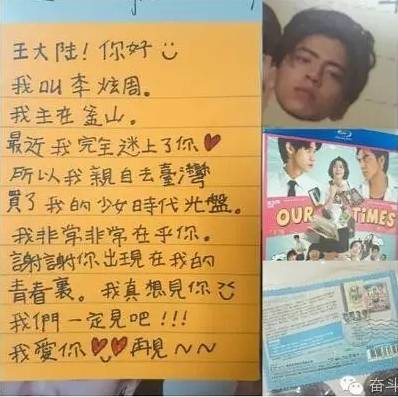 王大陸！你好
我叫李炫周。
我主在釜山。
最近我完全迷上了你
所以我親自去臺灣
買了我的少女時代光盤。
我非常非常在乎你。
謝謝你出現在我的
青春裏。我真想見你
我們一定見吧!!!
我愛你 再見~~
OUR TIMES
奋斗